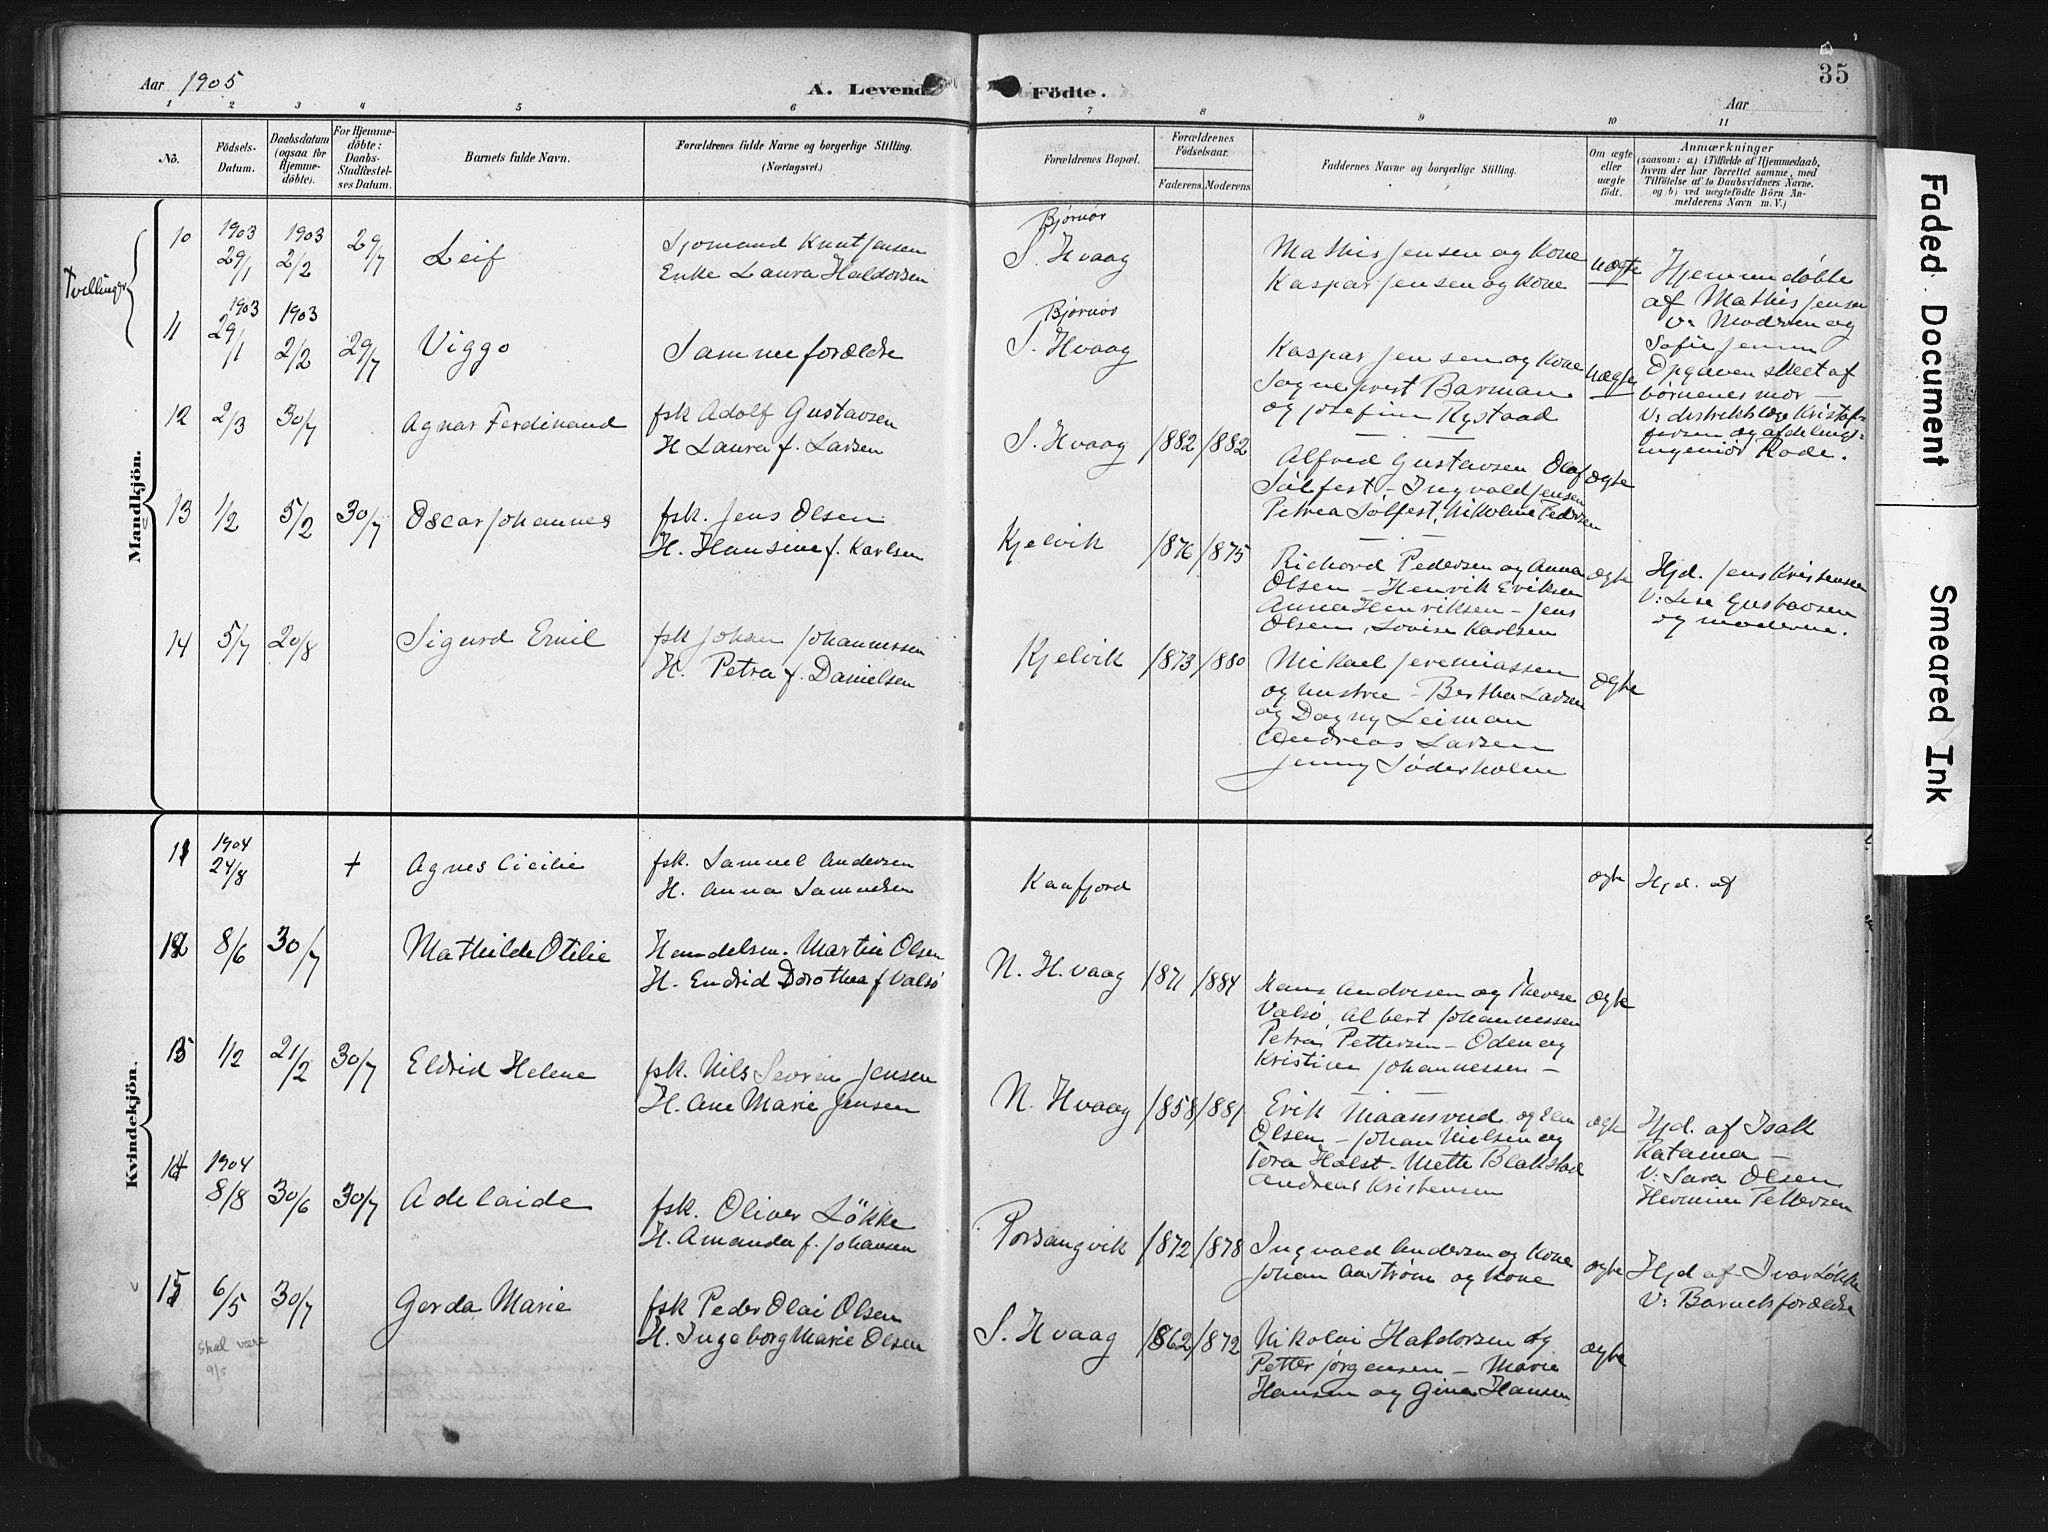 Aar 1905
A. Levende
Födte.
Aar
35
1 2 3 4 5 6 7 8 9 10 11
No.
Födsels-
Datum.
Daabsdatum
(ogsaa for
Hjemme-
döbte).
For Hjemme-
döbte:
Daabs-
Stadfæstel-
ses Datum.
Barnets fulde Navn.
Forældrenes fulde Navne og borgerlige Stilling.
(Næringsvei.)
Forældrenes Bopæl.
Forældrenes
Födselsaar.
Faderens. Moderens.
Faddernes Navne og borgerlige Stilling.
Om ægte
eller
uægte
födt.
Anmærkninger
(saasom: a) i Tilfælde af Hjemmedaab,
hvem der har forrettet samme, med
Tilföielse af to Daabsvidners Navne,
og b) ved uegtefödte Börn An-
melderens Navn m. V.)
Mandkjön.
Tvillinger
10
1903
29/1
1903
2/2
29/7
Leif
Sjømand Knut Jensen
Enke Laura Haldorsen
Bjørnør
S. Hvaag
Mathis Jensen og Kone
Kaspar Jensen og Kone
uægte
Hjemmedøbte
af Mathis Jensen
V: Modren og
Sofie Jensen
Opgaven skeet af
børnenes mor
V: distriktslæge Kristof-
fersen og afdelings-
ingeniør Rode.
11
1903
29/1
1903
2/2
29/7
Viggo
Samme forældre
Bjørnør
S. Hvaag
Kaspar Jensen og Kone
Sogneprest Barman
og Josefine Rystaad
uægte
12
2/3
30/7
Agnar Ferdinand
fsk Adolf Gustavsen
H Laura f. Larsen
S. Hvaag
1882
1882
Alfred Gustavsen Olaf
Sølfest - Ingvald Jensen
Petrea Sølfest, Nikoline Pedersen
ægte
13
1/2
5/2
30/7
Oscar Johannes
fsk. Jens Olsen
H. Hansine f. Karlsen
Kjelvik
1876
1875
Richard Pedersen og Anna
Olsen - Henrik Eriksen
Anna Henriksen - Jens
Olsen, Lovise Karlsen
ægte
Hjd. Jens Kristensen
V: Lise Gustavsen
og moderen.
14
5/7
20/8
Sigurd Emil
fsk Johan Johannessen
H. Petra f. Danielsen
Kjelvik
1873
1880
Mikael Jeremiassen
og hustru - Bertha Larsen
og Dagny Leiman
Andreas Larsen
Jenny Søderholm
ægte
Kvindekjön.
11
1904
24/8
+
Agnes Cicilie
fsk. Samuel Andersen
H. Anna Samuelsen
Kaafjord
ægte
Hjd. af
12
8/6
30/7
Mathilde Otilie
Handelsm. Martin Olsen
H. Endrid Dorothea f Valsø
N. Hvaag
1871
1884
Hans Andresen og Therese
Valsø, Albert Johannessen
Petra Pettersen - Oden og
Kristine Johannessen -
ægte
13
1/2
21/2
30/7
Eldrid Helene
fsk. Nils Sevrin Jensen
H. Ane Marie Jensen
N. Hvaag
1858
1881
Erik Maansrud og
Olsen - Johan Nielsen og
Tora Holst - Mette Blakstad
Andreas Kristensen
ægte
Hjd. af Isak
Katama -
V: Sara Olsen
Hermine Pettersen
14
1904
8/8
30/6
30/7
Adelaide
fsk. Oliver Løkke
H. Amanda f. Johansen
Porsangvik
1872
1878
Ingvald Andersen og Kone
Johan Aastrøm og Kone
ægte
Hjd af Ivar Løkke
V: Barnets forældre
15
6/5
30/7
Skal være
9/5
Gerda Marie
fsk Peder Olai Olsen
H. Ingeborg Marie Olsen
S. Hvaag
1862
1872
Nikolai Haldorsen og
Petter Jørgensen - Marie
Hansen og Gina Hansen
ægte
Faded Document
Smeared Ink